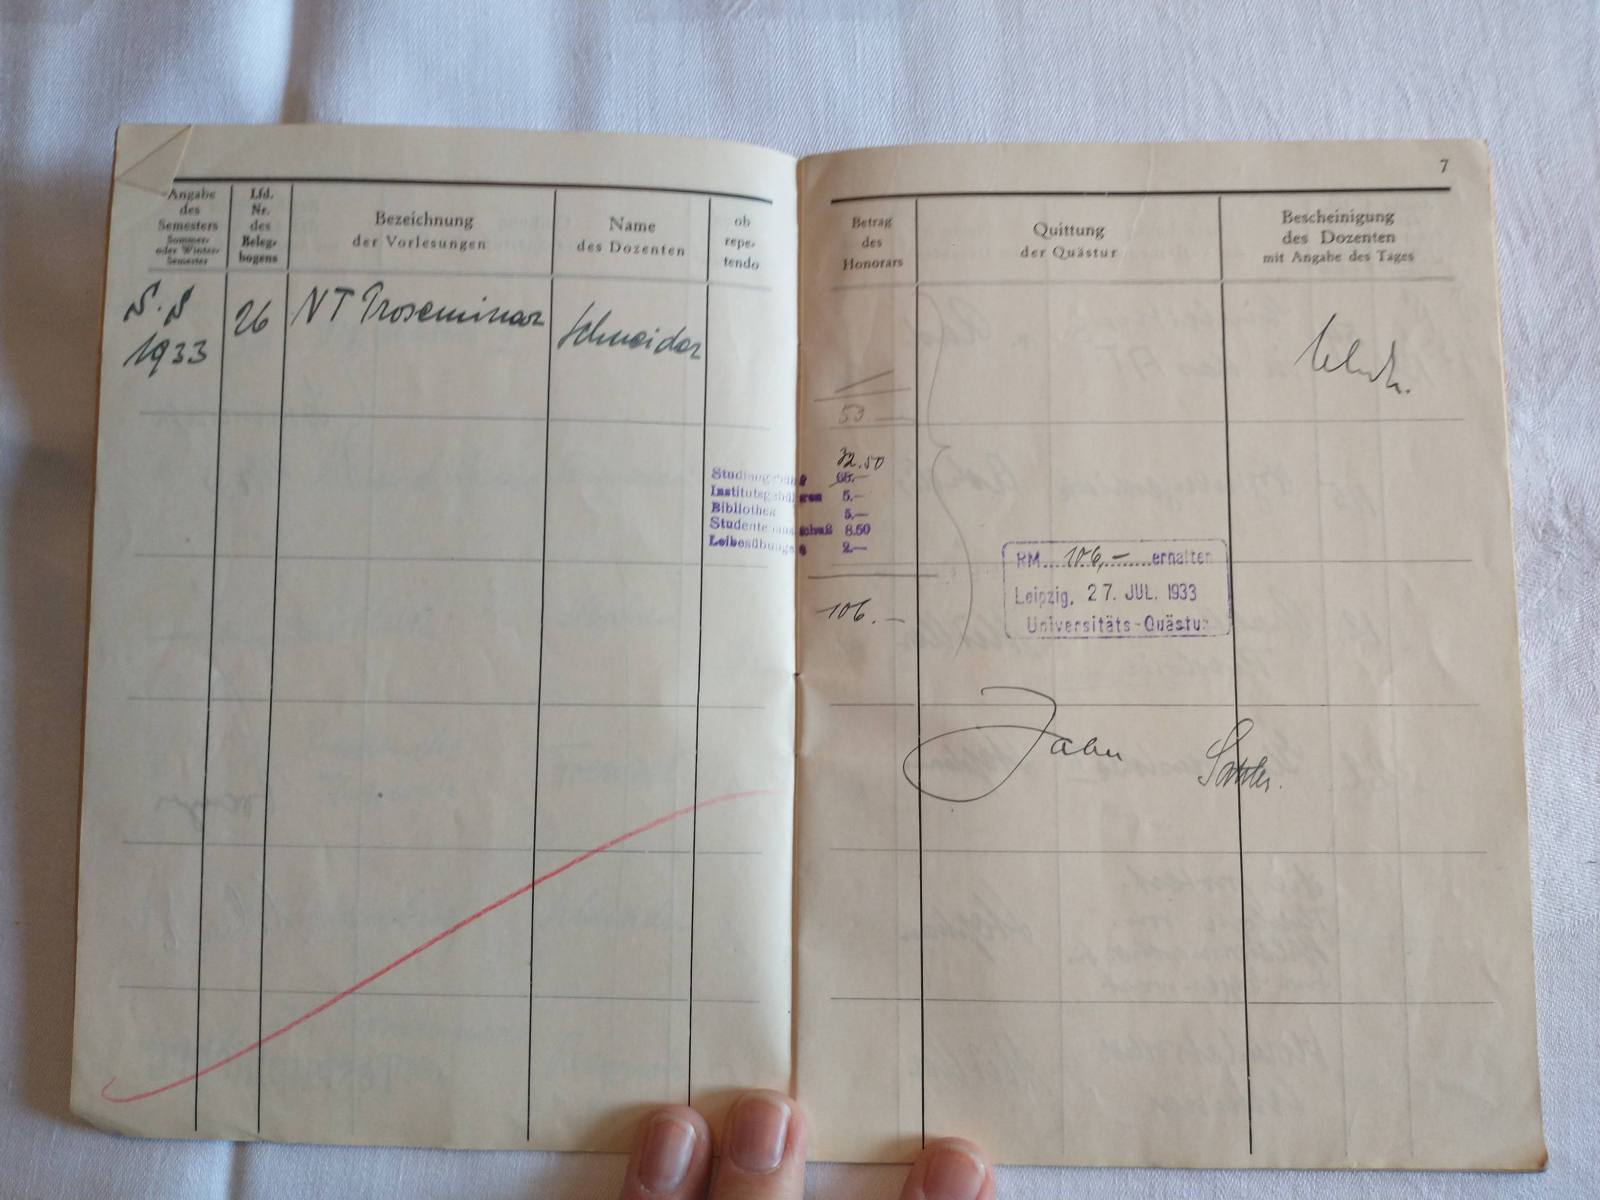 7
Angabe
des
Semesters
Sommer-
oder Winter-
Semester
Lfd.
Nr.
des
Beleg-
bogens
Bezeichnung
der Vorlesungen
Name
des Dozenten
ob
repe-
tendo
Betrag
des
Honorars
Quittung
der Quästur
Bescheinigung
des Dozenten
mit Angabe des Tages
S. S
1933
26
NT Proseminar
Schneider
53
32.50
Studiengebühr 65.-
Institutsgebühren 5.—
Bibliothek 5.—
Studentenausschuß 8.50
Leibesübungen 2.—
106.—
RM 106,— erhalten
Leipzig, 27. JUL. 1933
Universitäts-Quästur
Jahn